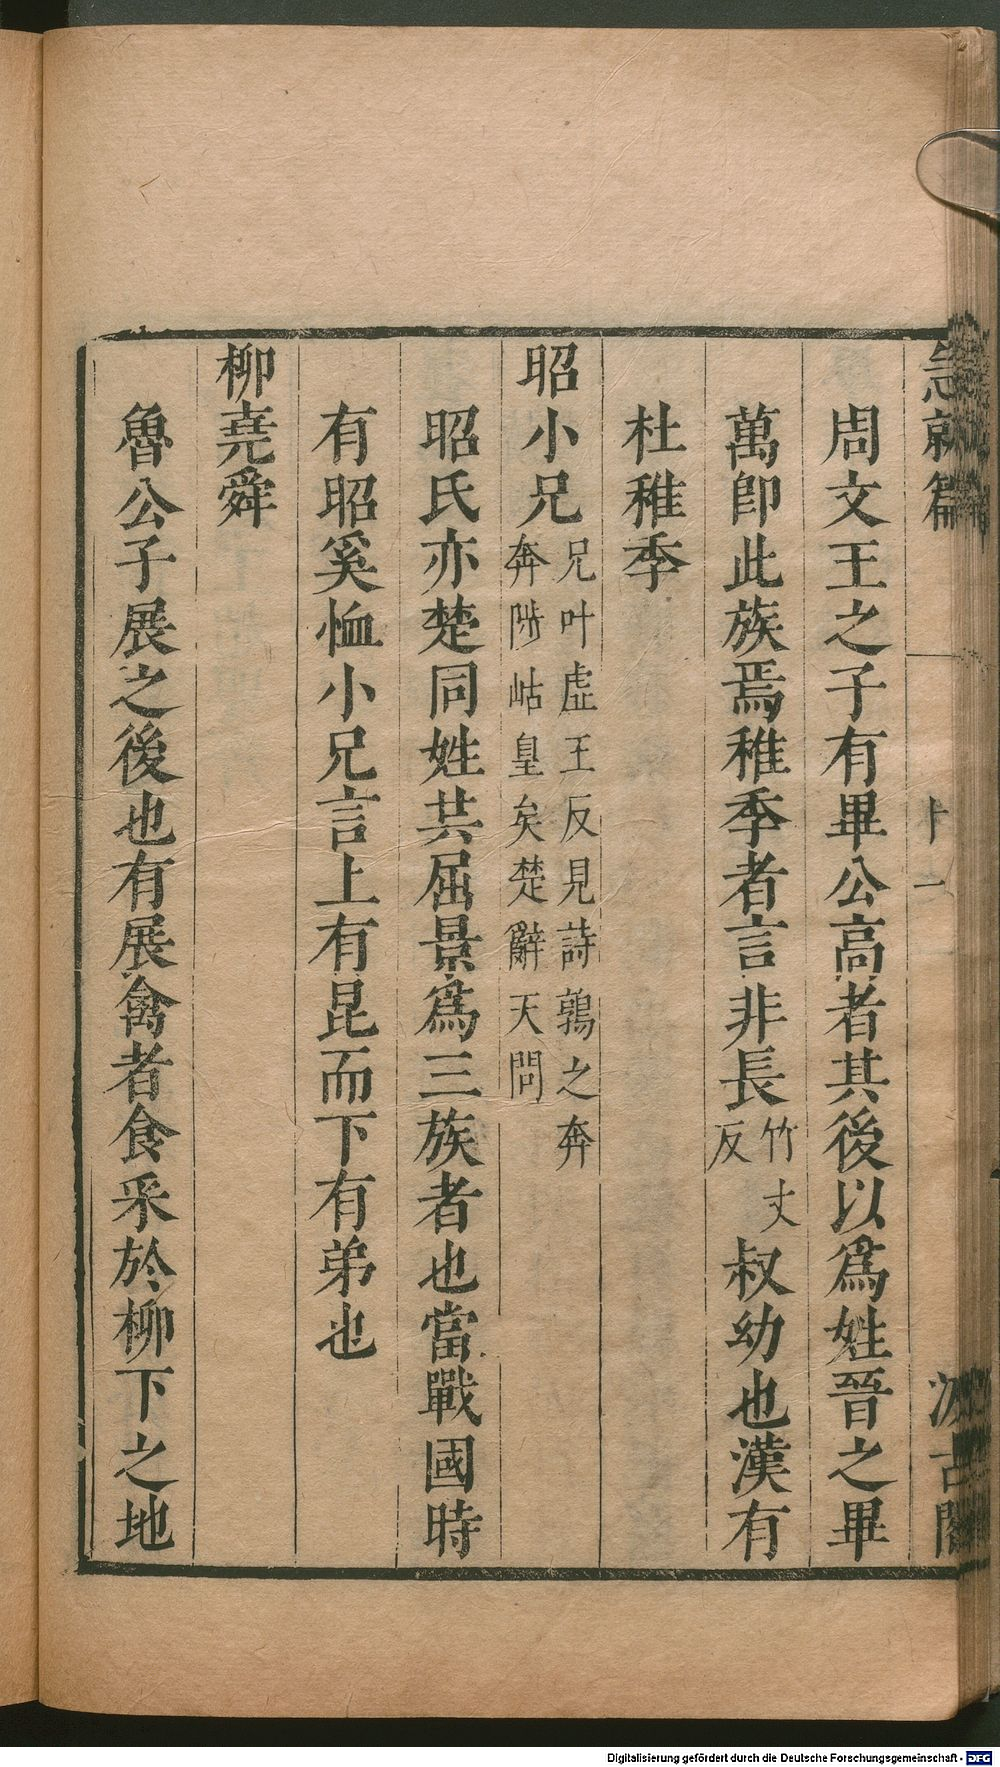 急就篇 十一 汲古閣
周文王之子有畢公高者其後以爲姓晉之畢
萬卽此族焉稚季者言非長竹丈反叔幼也漢有
杜稚季
昭小兄兄叶虛王反見詩鶉之奔奔陟岵皇矣楚辭天問
昭氏亦楚同姓共屈景爲三族者也當戰國時
有昭奚恤小兄言上有昆而下有弟也
柳堯舜
魯公子展之後也有展禽者食采於柳下之地
Digitalisierung gefördert durch die Deutsche Forschungsgemeinschaft - DFG